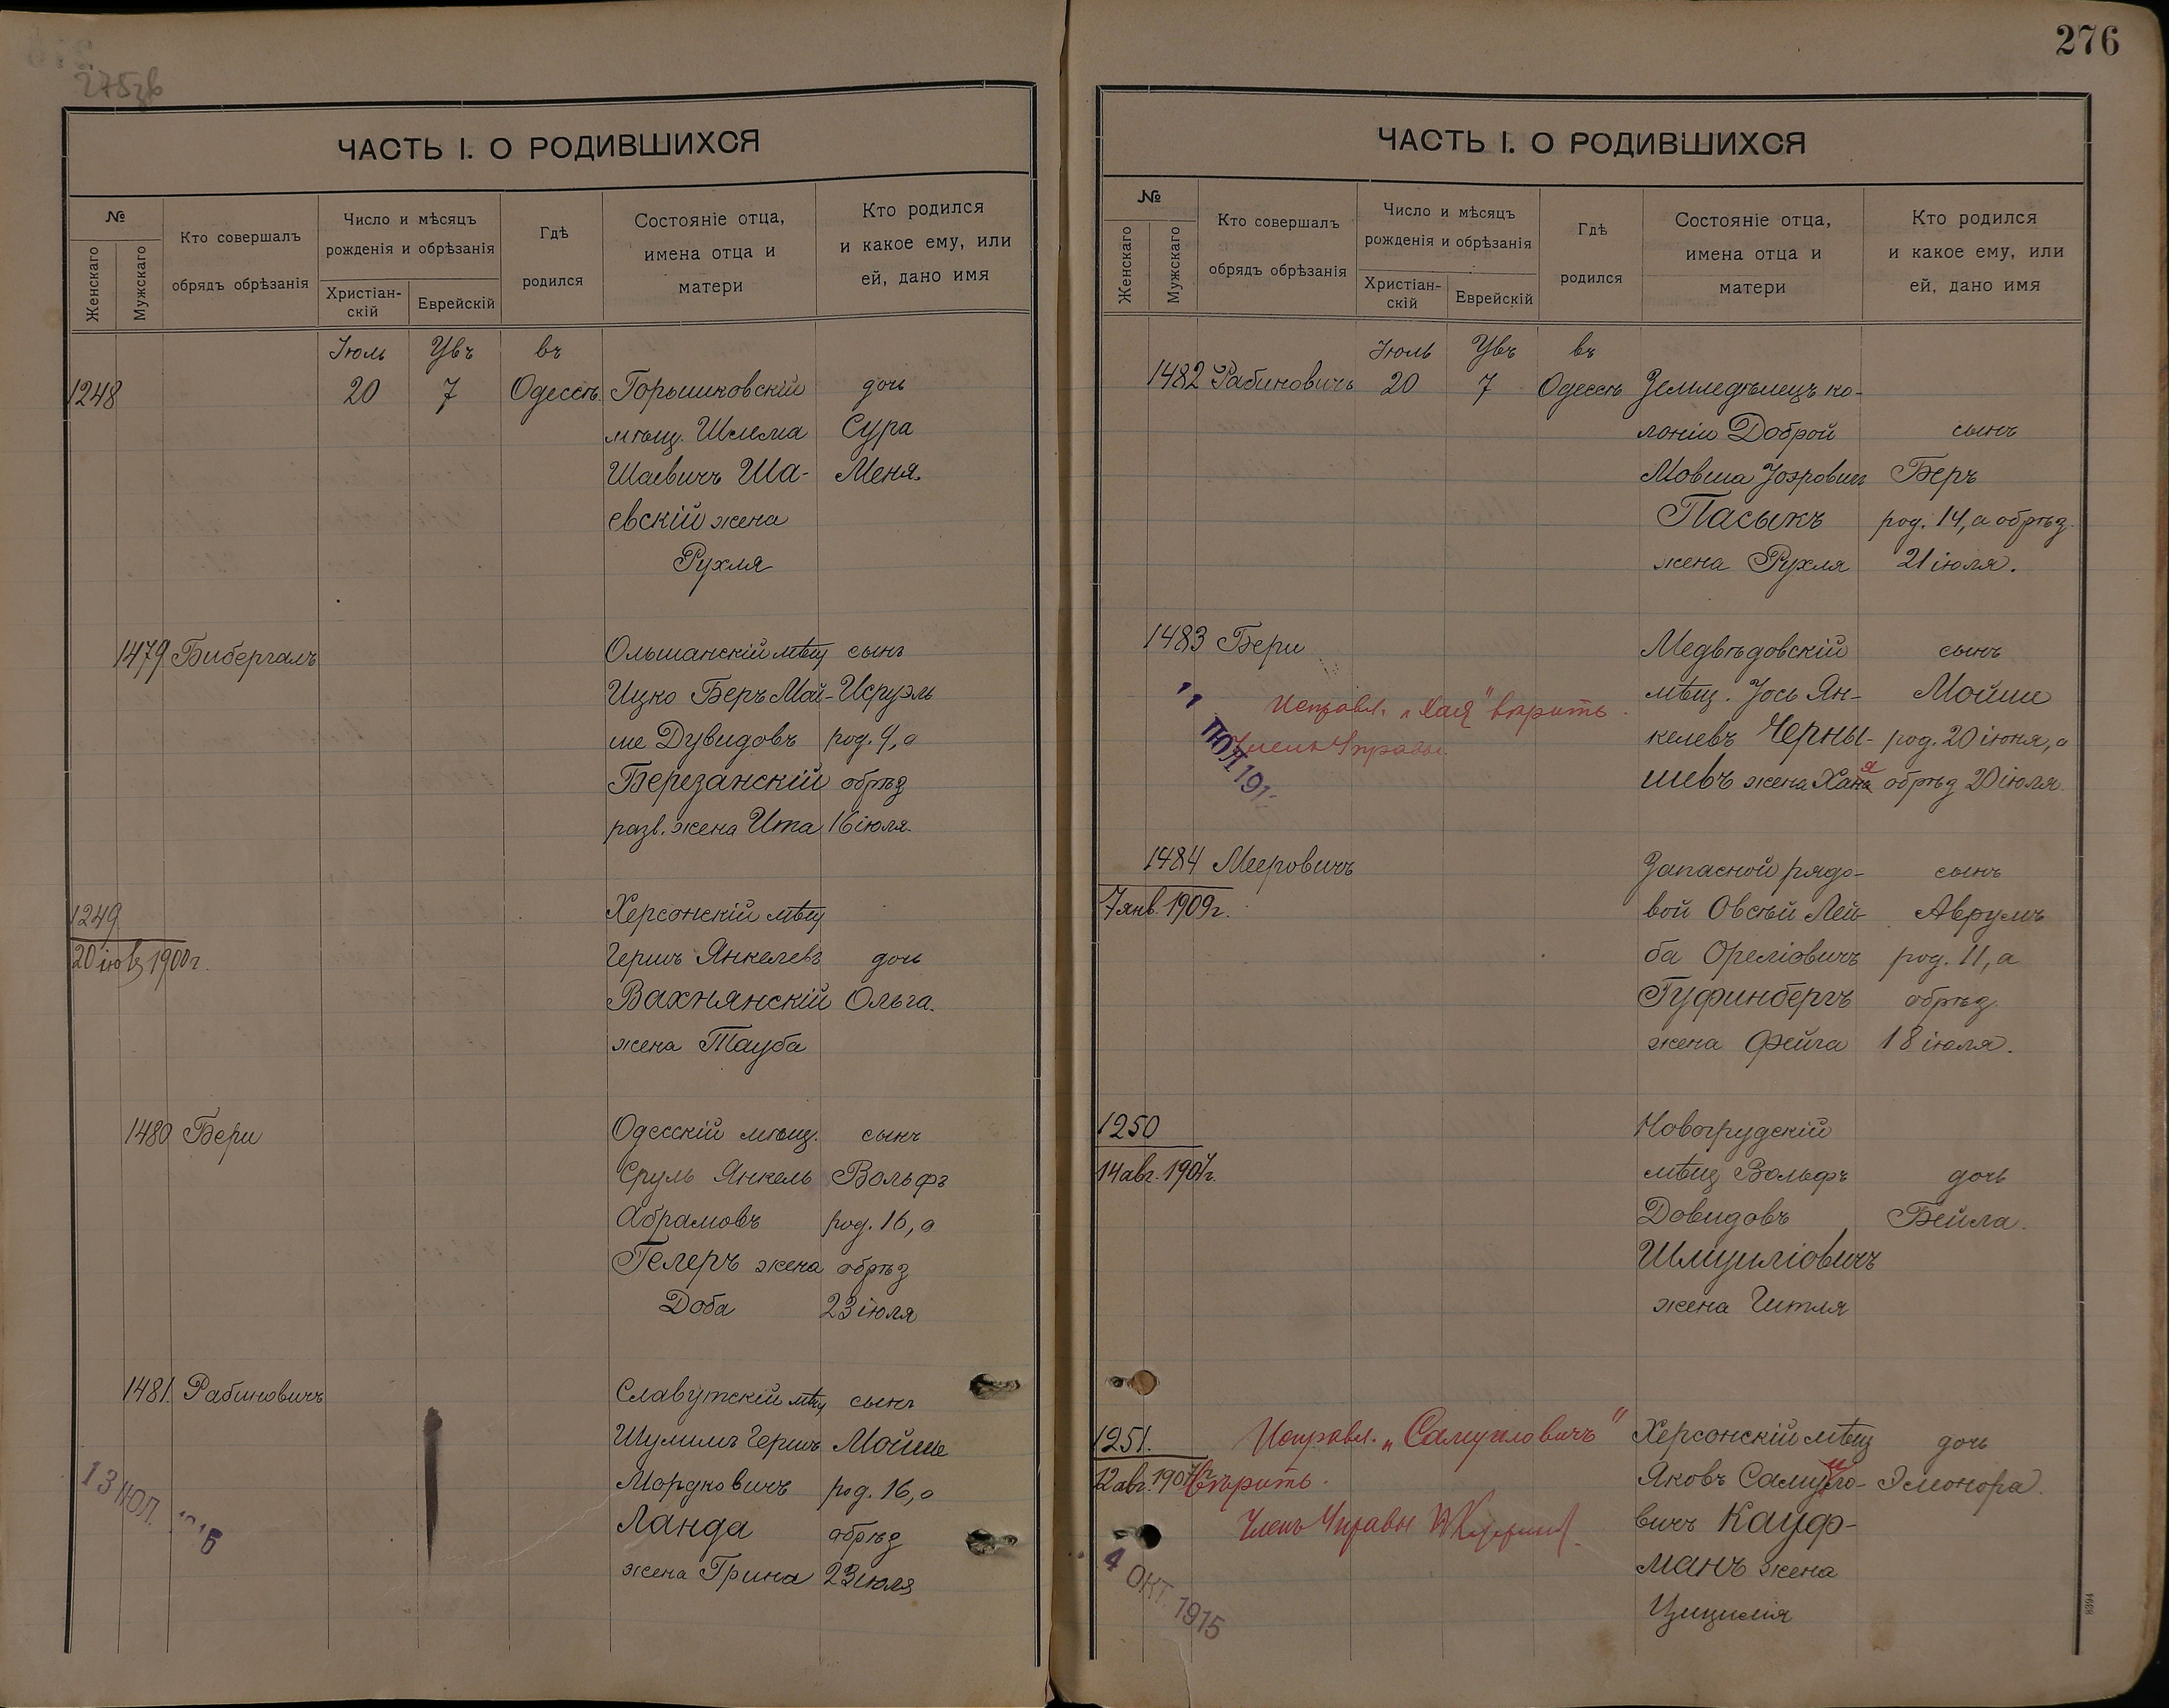 275 зв
ЧАСТЬ I. О РОДИВШИХСЯ
№
Женскаго
Мужскаго
Кто совершалъ
обрядъ обрѣзанія
Число и мѣсяцъ
рожденія и обрѣзанія
Христіан-
скій
Еврейскій
Гдѣ
родился
Состояніе отца,
имена отца и
матери
Кто родился
и какое ему, или
ей, дано имя
Іюль Увъ въ
1248 20 7 Одессѣ Горышковскій дочь
мѣщ. Шлема Сура
Шаевичъ Ша- Меня.
евскій жена
Рухля
1479 Бибергалъ Ольшанскій мѣщ сынъ
Ицко Беръ Мой- Исруэль
ше Дувидовъ род. 9, а
Березанскій обрѣз
разв. жена Ита 16 іюля.
1249 Херсонскій мѣщ
Гершъ Янкелевъ дочь
Вахнянскій Ольга.
жена Тауба
1480 Бери Одесскій мѣщ. сынъ
Сруль Янкель Вольфъ
Абрамовъ род. 16, а
Гелеръ жена обрѣз
Доба 23 іюля
1481. Рабиновичъ Славутскій мѣщ сынъ
Шулимъ Гершъ Мойше
Мордковичъ род. 16, а
Ланда обрѣз
жена Грина 23 іюля
13 ИЮЛ.
276
ЧАСТЬ I. О РОДИВШИХСЯ
№
Женскаго
Мужскаго
Кто совершалъ
обрядъ обрѣзанія
Число и мѣсяцъ
рожденія и обрѣзанія
Христіан-
скій
Еврейскій
Гдѣ
родился
Состояніе отца,
имена отца и
матери
Кто родился
и какое ему, или
ей, дано имя
Іюль Увъ въ
1482 Рабиновичъ 20 7 Одессѣ Земледѣлецъ ко-
лоніи Доброй сынъ
Мовша Іозровичъ Беръ
Пасыкъ род. 14, а обрѣз.
жена Рухля 21 іюля.
1483 Бери Медвѣдовскій сынъ
мѣщ. Іось Ян- Мойше
келевъ Черны- род. 20 іюня, а
шевъ жена Хана обрѣз 20 іюля.
я
Исправл. „Хая" вѣрить.
Членъ Управы
11 ИЮЛ 191
1484 Мееровичъ Запасной рядо- сынъ
7 янв. 1909 г. вой Овсѣй Лей- Аврумъ
ба Ореліовичъ род. 11, а
Гуфинбергъ обрѣз.
жена Фейга 18 іюля.
1250 Новогрудскій
14 авг. 1907 г. мѣщ Вольфъ дочь
Довидовъ Бейла.
Шмуиліовичъ
жена Гитля
1251. Исправл. „Самуиловичъ" Херсонскій мѣщ дочь
12 авг. 1907 г. вѣрить. Яковъ Самуило- Элеонора.
Членъ Управы вичъ Кауф-
манъ жена
Цицилія
4 ОКТ. 1915
8394